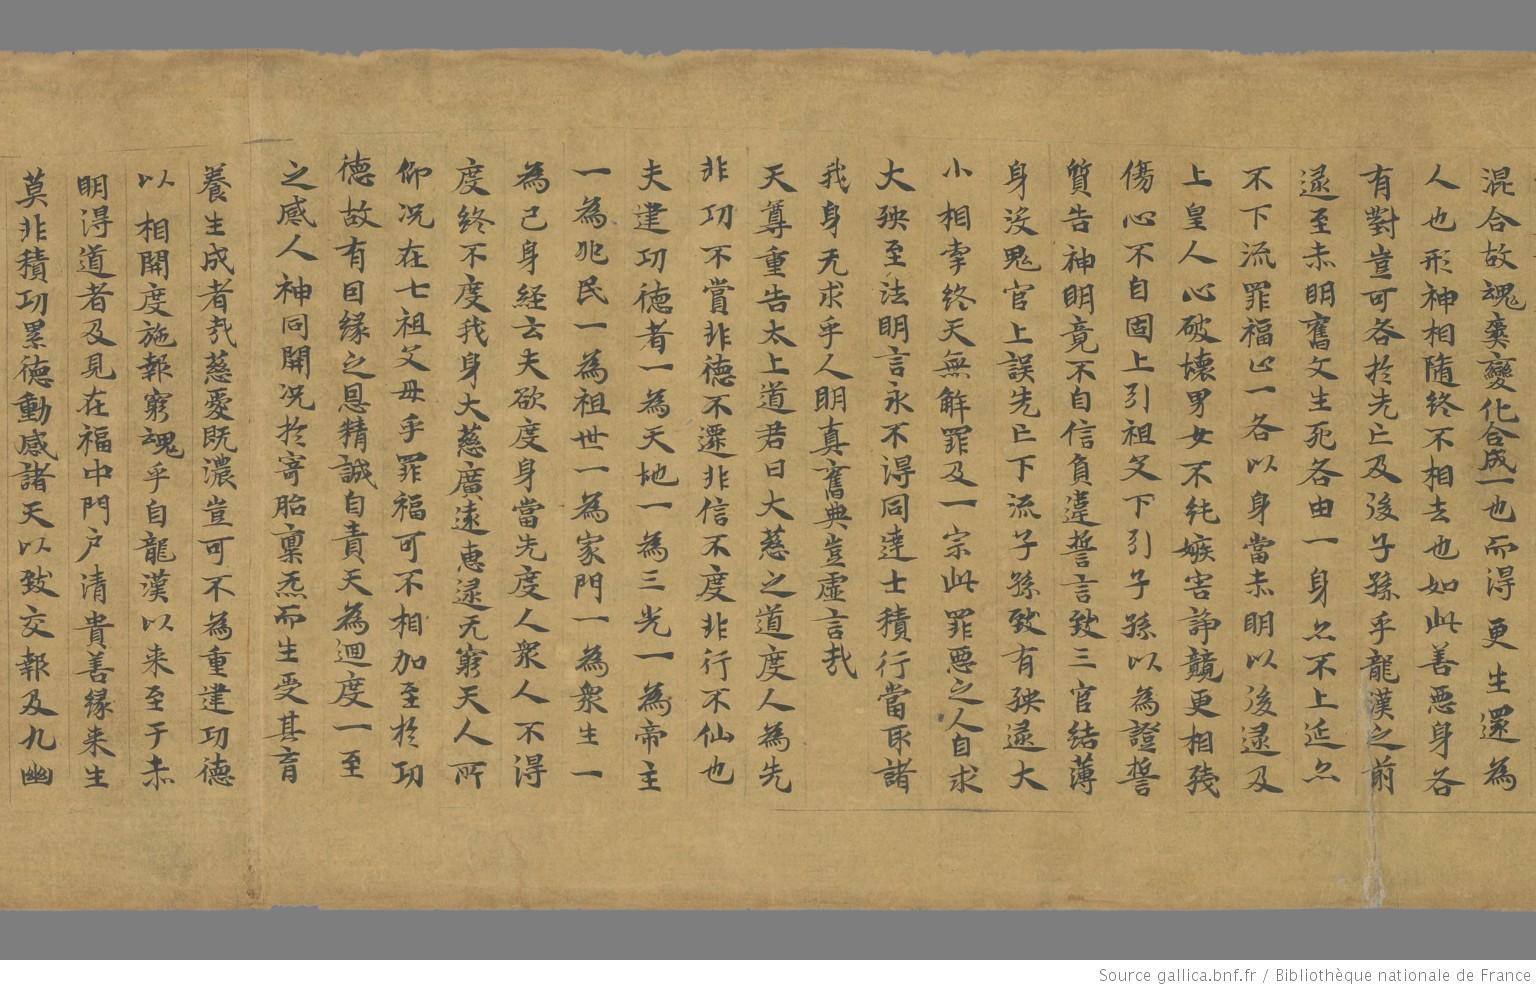 混合故魂爽變化合成一也而得更生還為
人也形神相隨終不相去也如此善惡身各
有對豈可各於先亡及後子孫乎龍漢之前
逮至赤明舊文生死各由一身亦不上延亦
不下流罪福止一各以身當赤明以後逮及
上皇人心破壞男女不純嫉害諍競更相殘
傷心不自固上引祖父下引子孫以為證誓
質告神明竟不自信負違誓言致三官結薄
身沒鬼官上誤先亡下流子孫致有殃逮大
小相牽終天無解罪及一宗此罪惡之人自求
大殃至法明言永不得同達士積行當取諸
我身无求乎人明真舊典豈虛言哉
天尊重告太上道君曰大慈之道度人為先
非功不賞非德不遷非信不度非行不仙也
夫建功德者一為天地一為三光一為帝主
一為兆民一為祖世一為家門一為衆生一
為己身経云夫欲度身當先度人衆人不得
度終不度我身大慈廣遠惠逮无窮天人所
仰况在七祖父母乎罪福可不相加至於功
德故有因緣之恩精誠自責天為迴度一至
之感人神同開况於寄胎稟炁而生受其育
養生成者哉慈愛既濃豈可不為重建功德
以相開度施報窮魂乎自龍漢以来至于赤
明得道者及見在福中門户清貴善緣来生
莫非積功累德動感諸天以致交報及九幽
Source gallica.bnf.fr / Bibliothèque nationale de France